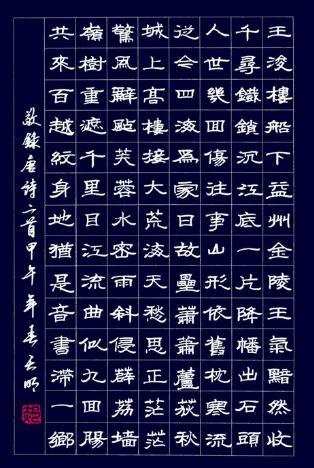 王浚樓船下益州金陵王氣黯然收
千尋鐵鎖沉江底一片降幡出石頭
人世幾回傷往事山形依舊枕寒流
從今四海爲家日故壘蕭蕭蘆荻秋
城上高樓接大荒海天愁思正茫茫
驚風亂颭芙蓉水密雨斜侵薜荔墙
嶺樹重遮千里目江流曲似九回腸
共來百越紋身地猶是音書滯一鄉
敬錄唐詩二首甲午年春天明